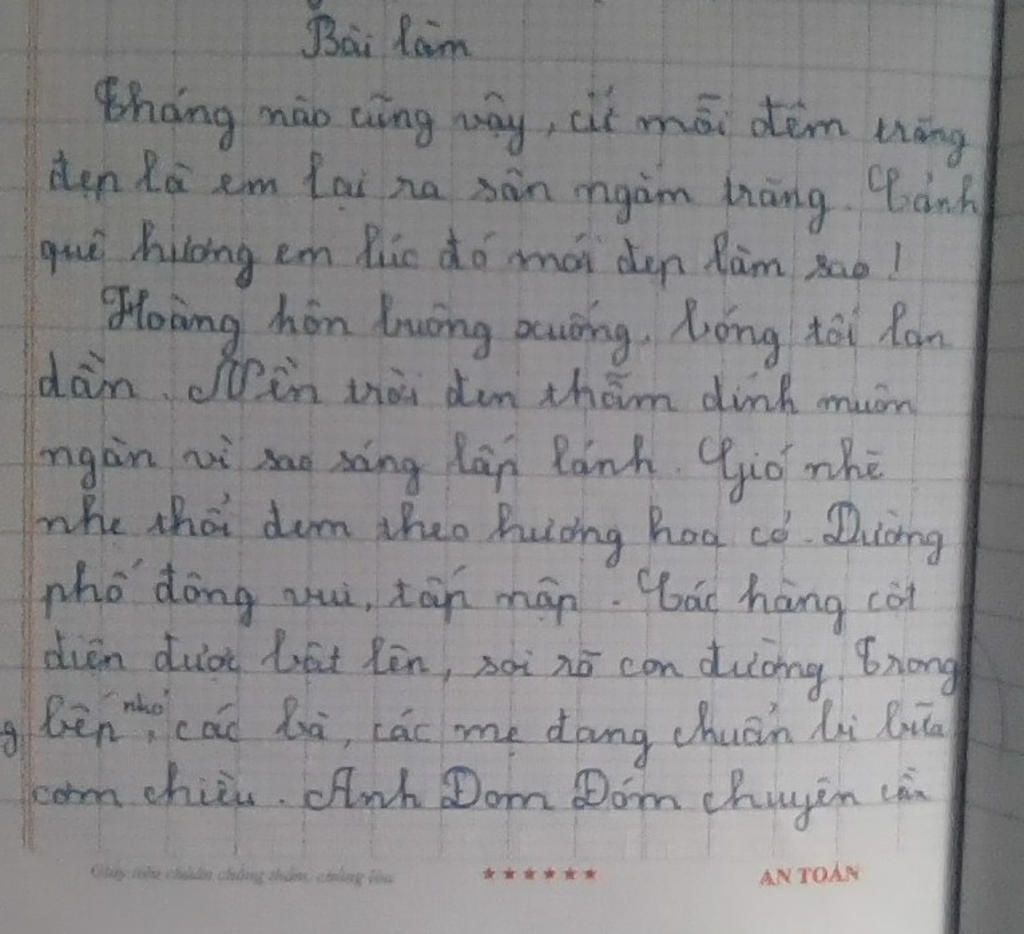 Bài làm
Tháng nào cũng vậy, cứ mỗi đêm trăng
đẹp là em lại ra sân ngắm trăng. Cảnh
quê hương em lúc đó mới đẹp làm sao!
Hoàng hôn buông xuống. bóng tối lan
dần. Nền trời đen thẫm đính muôn
ngàn vì sao sáng lấp lánh. Gió nhè
nhẹ thổi đem theo hương hoa cỏ. Đường
phố đông vui, tấp nập. Các hàng cột
điện được bật lên, soi rõ con đường. Trong
bếp nhỏ, các bà, các mẹ đang chuẩn bị bữa
cơm chiều. Anh Đom Đóm chuyên cần
Giấy tiêu chuẩn chống thấm, chống lóa
★★★★★★
AN TOÀN